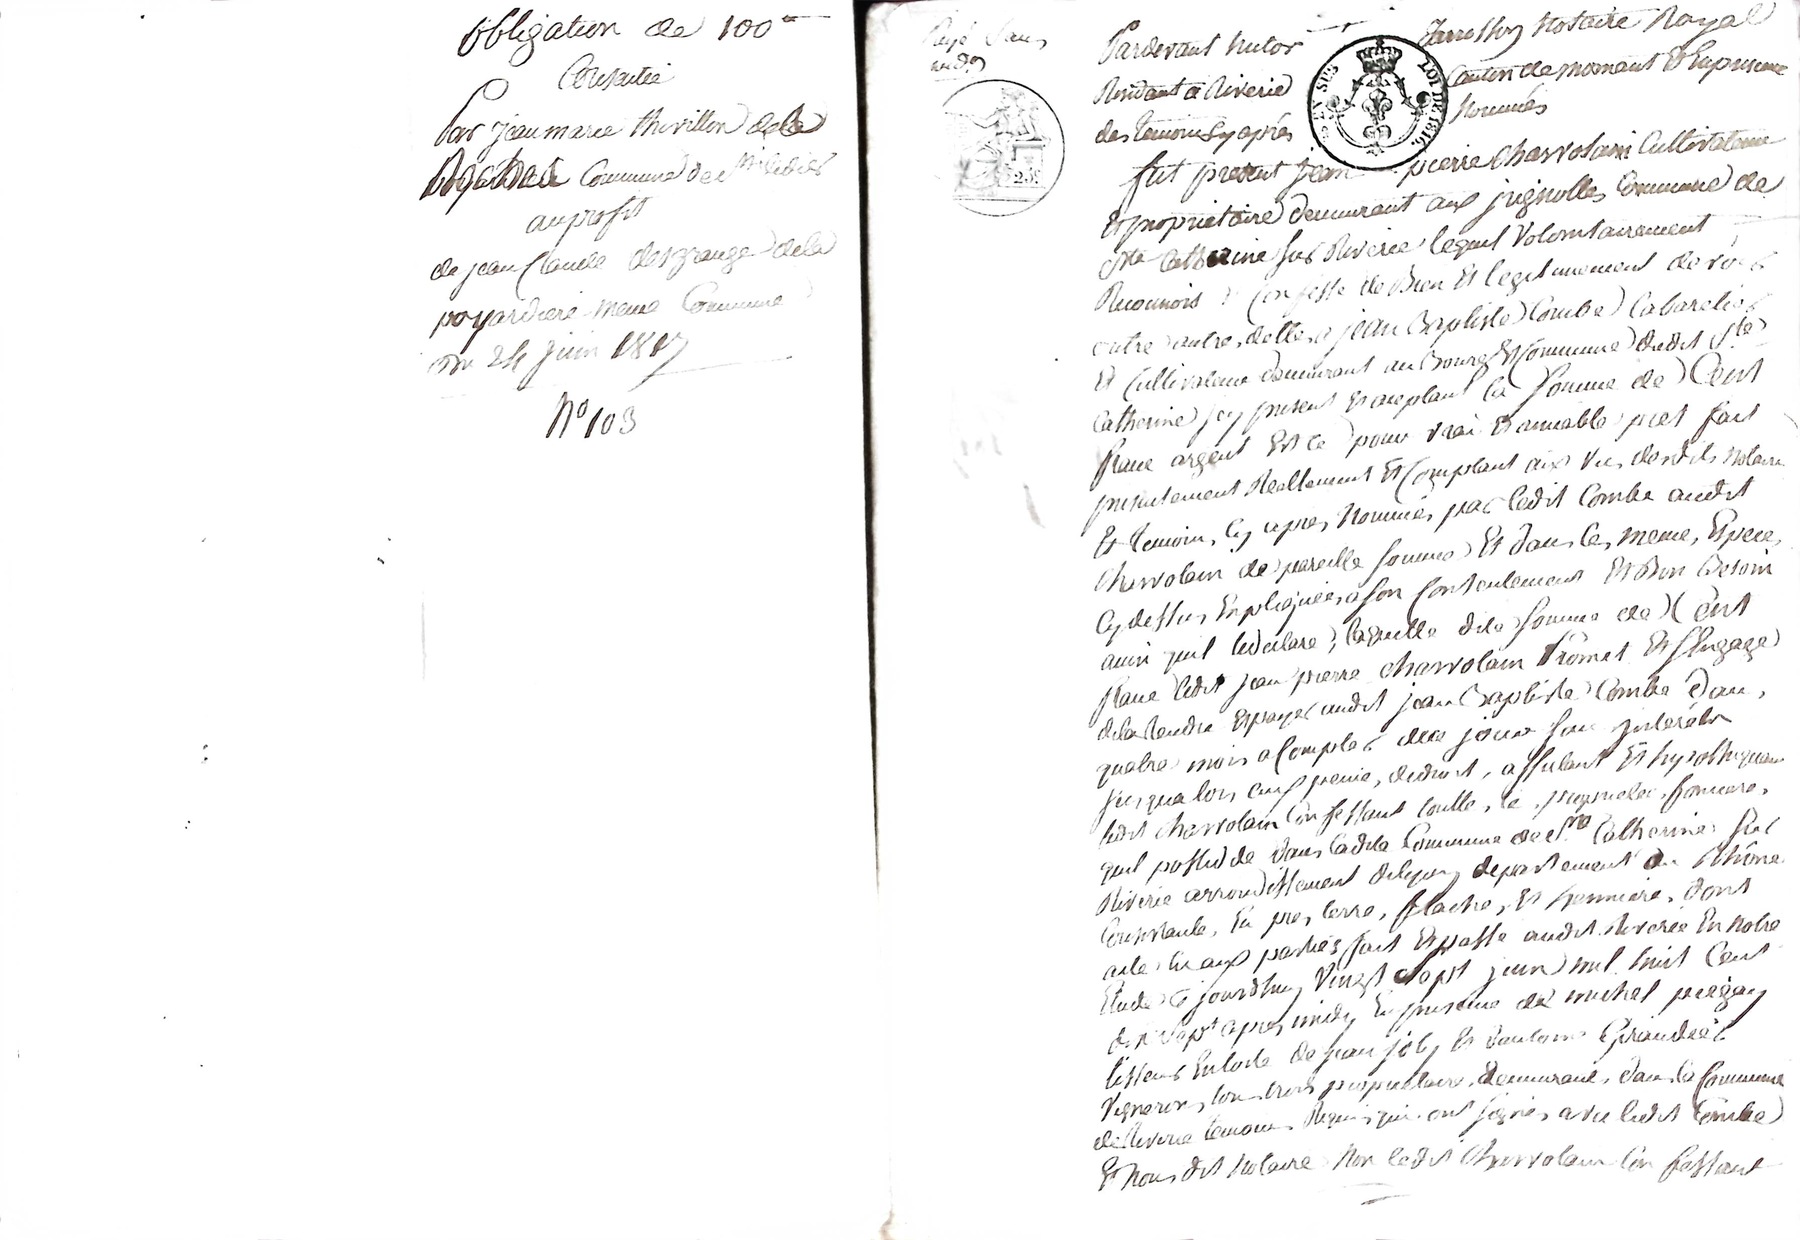 obligation de 100
Consentie
Par jean marie thivillon de la
Commune de St
au profit
de jean Claude desgrange de la
poyardiere meme Commune
Du 24 juin 1817
N° 103
Payé Sans
25
SES
LOI DE 1816.
Pardevant Notaire Royal
Résidant à Riverie Canton de mornant Et En presence
des temoins Cy après Nommés
fut présent jean pierre Charvolain Cultivateur
Et propriétaire demeurant aux jugnolles Commune de
Ste Catherine sur Riverie lequel volontairement
Reconnois Confesse de Bien Et legitimement devoir
jean Baptiste Combe Cabaretier
Et Cultivateur demeurant au Bourg Et Commune dudit Ste
Catherine jcy present Et acceptant la somme de Cent
franc argent Et ce pour vrai Et amiable pret fait
presentement Reellement Et Comptant aux vus desdits notaire
Et temoins Cy apres Nommés par ledit Combe audit
Charvolain de pareille somme Et dans les meme Espece
Cy dessus Expliquées a son Contentement Et Bon Besoin
ainsi quil le declare, laquelle dite somme de Cent
franc ledit jean pierre Charvolain Promet Et S'Engage
de la Rendre Et payer audit jean Baptiste Combe dans
quatre mois a Compter de ce jour sans jnterets
jusqua lors aux peine de droit, affectant Et hypothequant
ledit Charvolain Confessant toutte les proprietes fonciere
quil possede dans ladite Commune de Ste Catherine sur
Riverie arrondissement de Lyon departement du Rhône
Consistante En pres, terre, Et dont
acte lu aux parties fait Et passé audit Riverie En notre
Etude Ce jourdhuy Vingt Sept juin mil huit Cent
dix Sept apres midy En presence de michel
tisseur de jean joly Et d'antoine
Vignerons tous trois proprietaire demeurant dans la Commune
de Riverie temoins Requis qui ont signés avec ledit Combe
Et Nous dit Notaire Non ledit Charvolain Confessant